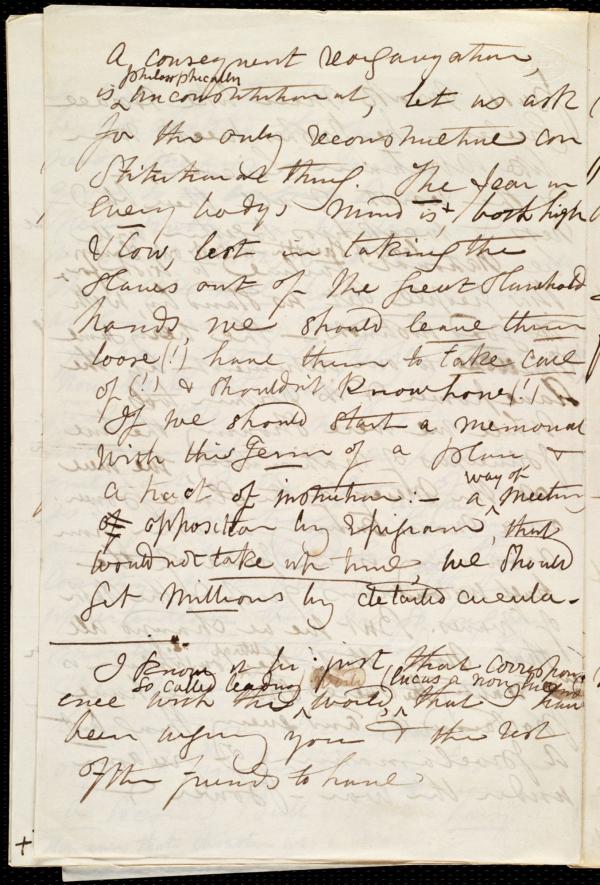 A consequent reorganization,
philosophically
is ^ unconstitutional, let us ask
for the only reconstructive con
stitutional thing. The fear in
every bodys mind is, both high
& low, lest in taking the
slaves out of the great Slavehold
hands, we should leave them
loose (!) have them to take care
of (!) & shouldn't know how (!)
If we should start a memorial
with this Germ of a plan &
a tract of instruction:— a ^ way of meeting
of opposition by Epigram, that
would not take up time, we should
get Millions by detailed circula-
I know it by just that correspond
so called leading
ence with the ^ world, ^ that I have
been urging you & the rest
of the friends to have
+